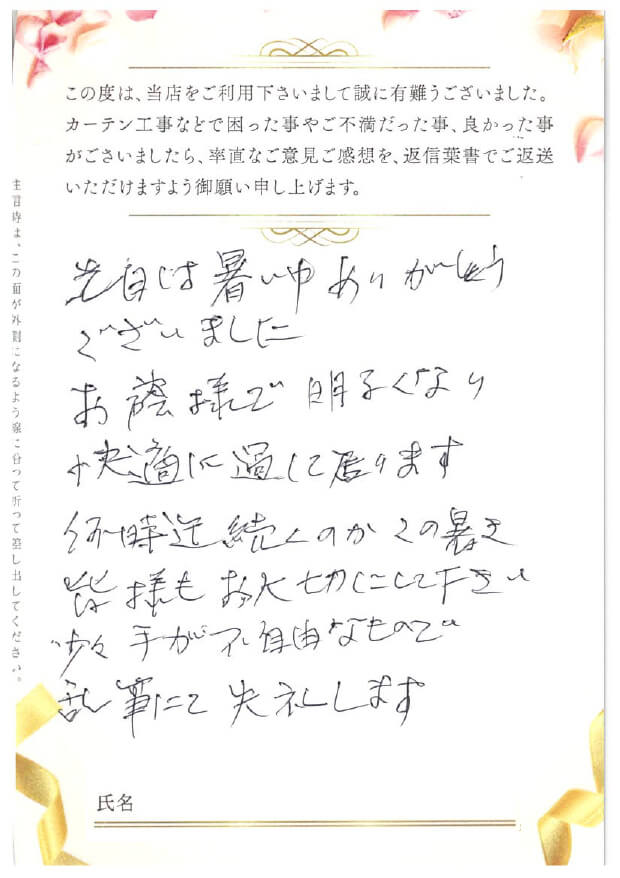 この度は、当店をご利用下さいまして誠に有難うございました。
カーテン工事などで困った事やご不満だった事、良かった事
がございましたら、率直なご意見ご感想を、返信葉書でご返送
いただけますよう御願い申し上げます。
先日は暑い中ありがとう
ございました
お蔭様で明るくなり
快適に過して居ります
何時迄続くのかこの暑さ
皆様もお大切にして下さい
少々手が不自由なもので
乱筆にて失礼します
氏名
は、この面が外側になるよう線に沿って折って差し出してください。